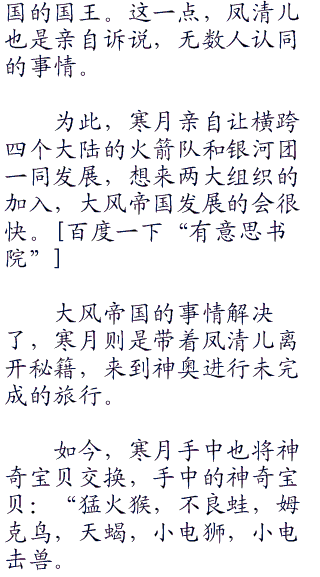 国的国王。这一点，凤清儿
也是亲自诉说，无数人认同
的事情。
为此，寒月亲自让横跨
四个大陆的火箭队和银河团
一同发展，想来两大组织的
加入，大风帝国发展的会很
快。[百度一下“有意思书
院”]
大风帝国的事情解决
了，寒月则是带着凤清儿离
开秘籍，来到神奥进行未完
成的旅行。
如今，寒月手中也将神
奇宝贝交换，手中的神奇宝
贝：“猛火猴，不良蛙，姆
克鸟，天蝎，小电狮，小电
击兽。